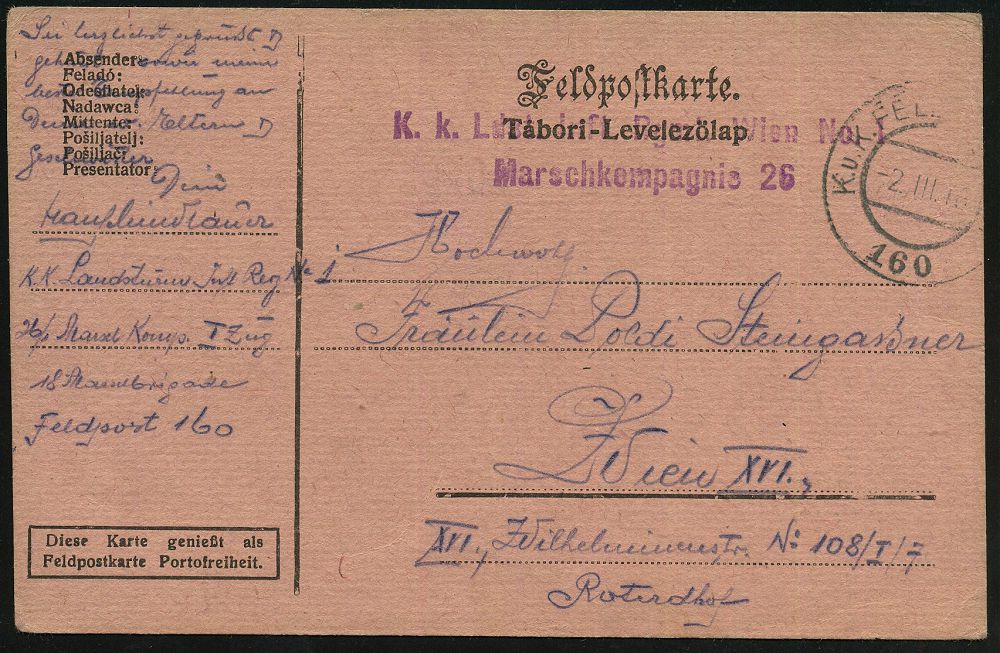 Sei herzlichst gegrüßt u
meine
an
Deine Eltern u
Geschwister
Dein
Absender:
Feladó:
Odesílatel:
Nadawca:
Mittente:
Pošiljatelj:
Pošiljač:
Presentator:
K.K. Landsturm Inft Reg No 1.
26/ Marsch Komp. I Zug
18 Marschbrigade
Feldpost 160
Diese Karte genießt als
Feldpostkarte Portofreiheit.
Feldpostkarte.
Tábori-Levelezőlap
K. k. Wien No. 1
Marschkompagnie 26
K.u.K. FEL
-2.III.
160
Hochwolg.
Fräulein Poldi Steingassner
Wien XVI.,
XVI., Wilhelminenstr. No 108/I/7